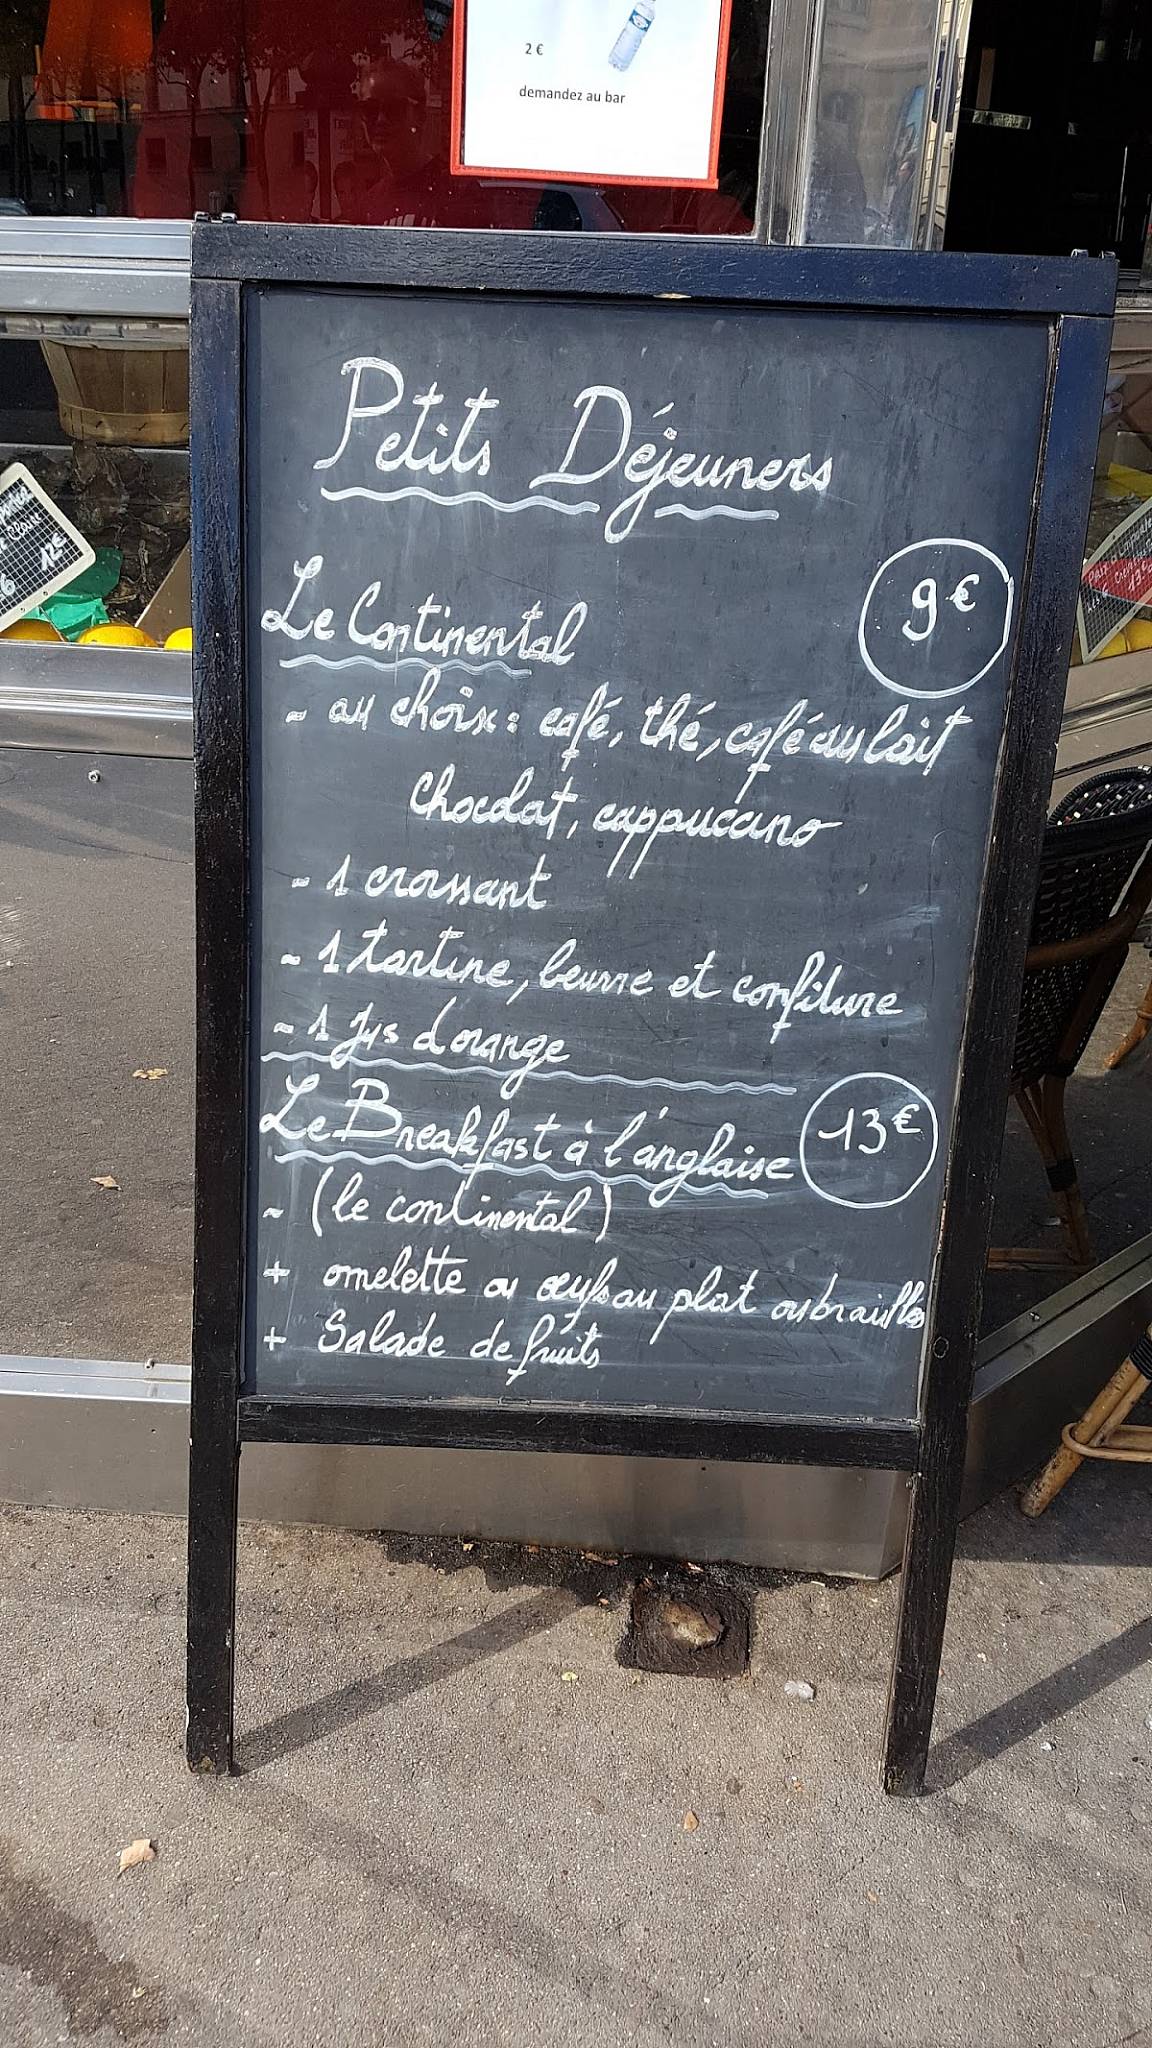 2 €
demandez au bar
Petits Déjeuners
Le Continental
9€
- au choix : café, thé, café au lait
chocolat, cappuccino
- 1 croissant
- 1 tartine, beurre et confiture
- 1 jus d'orange
Le Breakfast à l'anglaise
13€
- (le continental)
+ omelette ou œufs au plat ou brouillés
+ Salade de fruits
12€